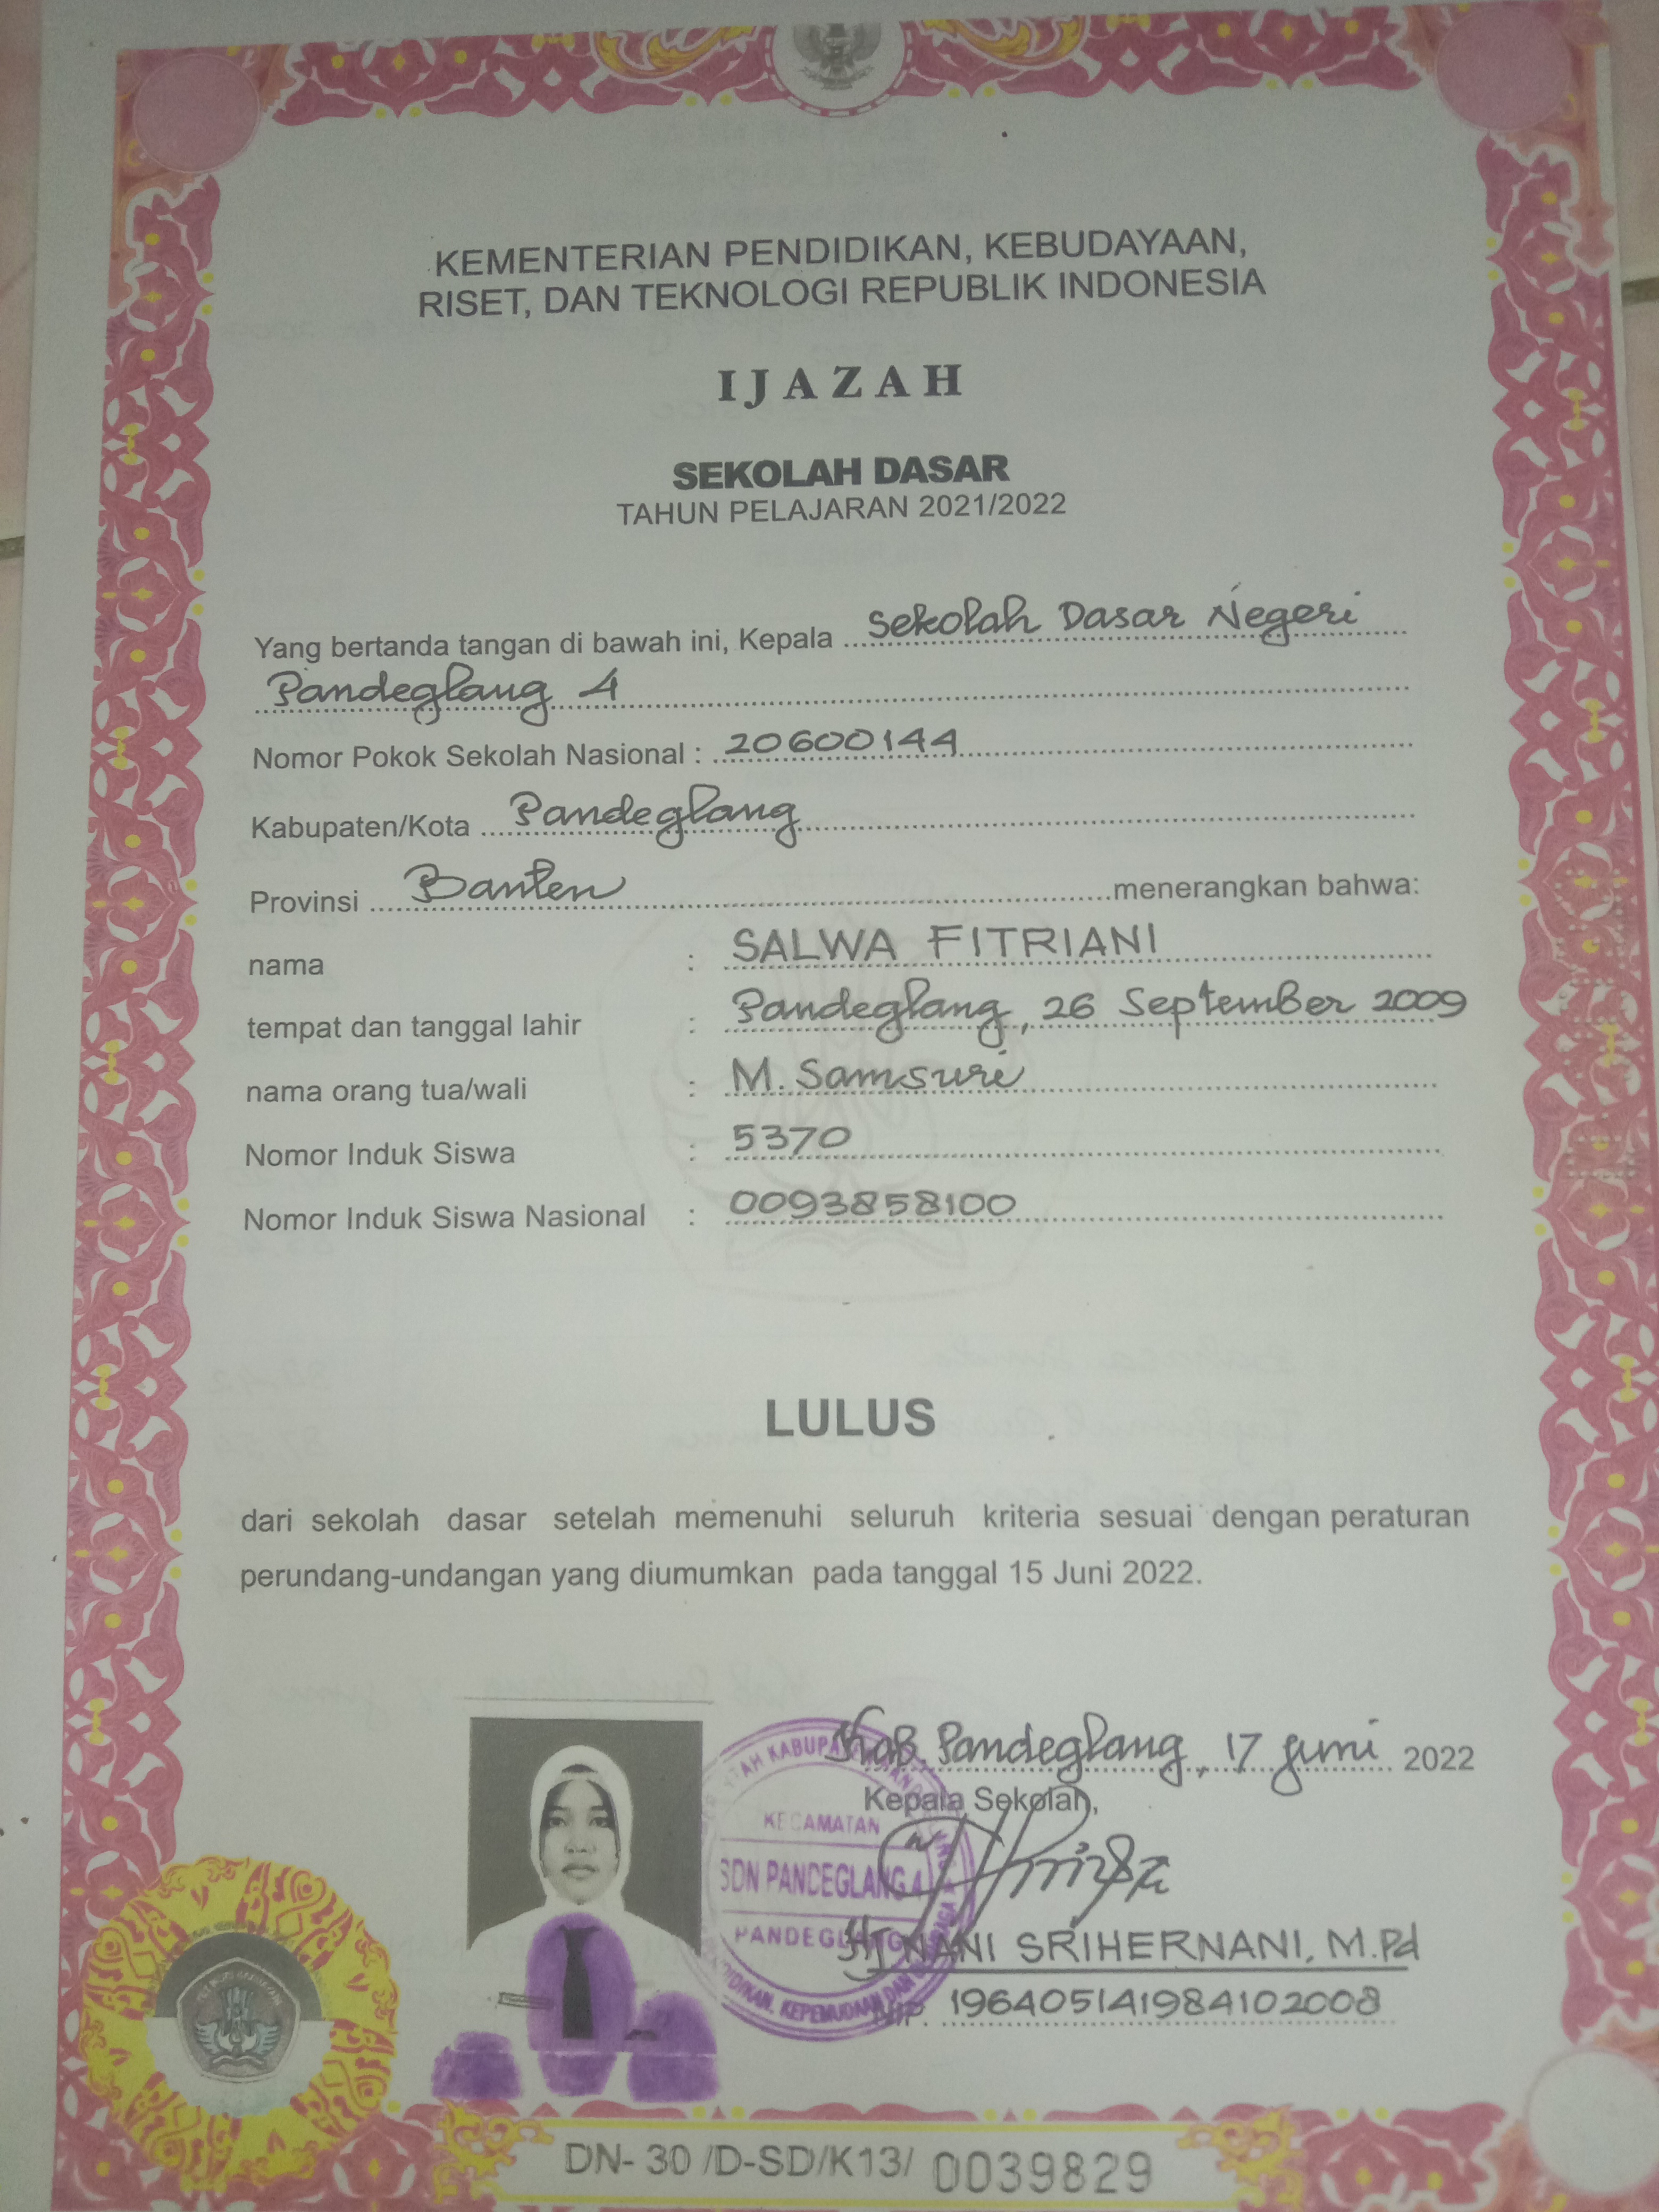 KEMENTERIAN PENDIDIKAN, KEBUDAYAAN,
RISET, DAN TEKNOLOGI REPUBLIK INDONESIA
IJAZAH
SEKOLAH DASAR
TAHUN PELAJARAN 2021/2022
Yang bertanda tangan di bawah ini, Kepala Sekolah Dasar Negeri
Pandeglang 4
Nomor Pokok Sekolah Nasional : 20600144
Kabupaten/Kota Pandeglang
Provinsi Banten menerangkan bahwa:
nama : SALWA FITRIANI
tempat dan tanggal lahir : Pandeglang, 26 September 2009
nama orang tua/wali : M. Samsuri
Nomor Induk Siswa : 5370
Nomor Induk Siswa Nasional : 0093858100
LULUS
dari sekolah dasar setelah memenuhi seluruh kriteria sesuai dengan peraturan
perundang-undangan yang diumumkan pada tanggal 15 Juni 2022.
Kab. Pandeglang, 17 Juni 2022
Kepala Sekolah,
KECAMATAN
SDN PANDEGLANG 4
PANDEGLANG
Hj NANI SRIHERNANI, M.Pd
NIP. 196405141984102008
DN- 30 /D-SD/K13/ 0039829